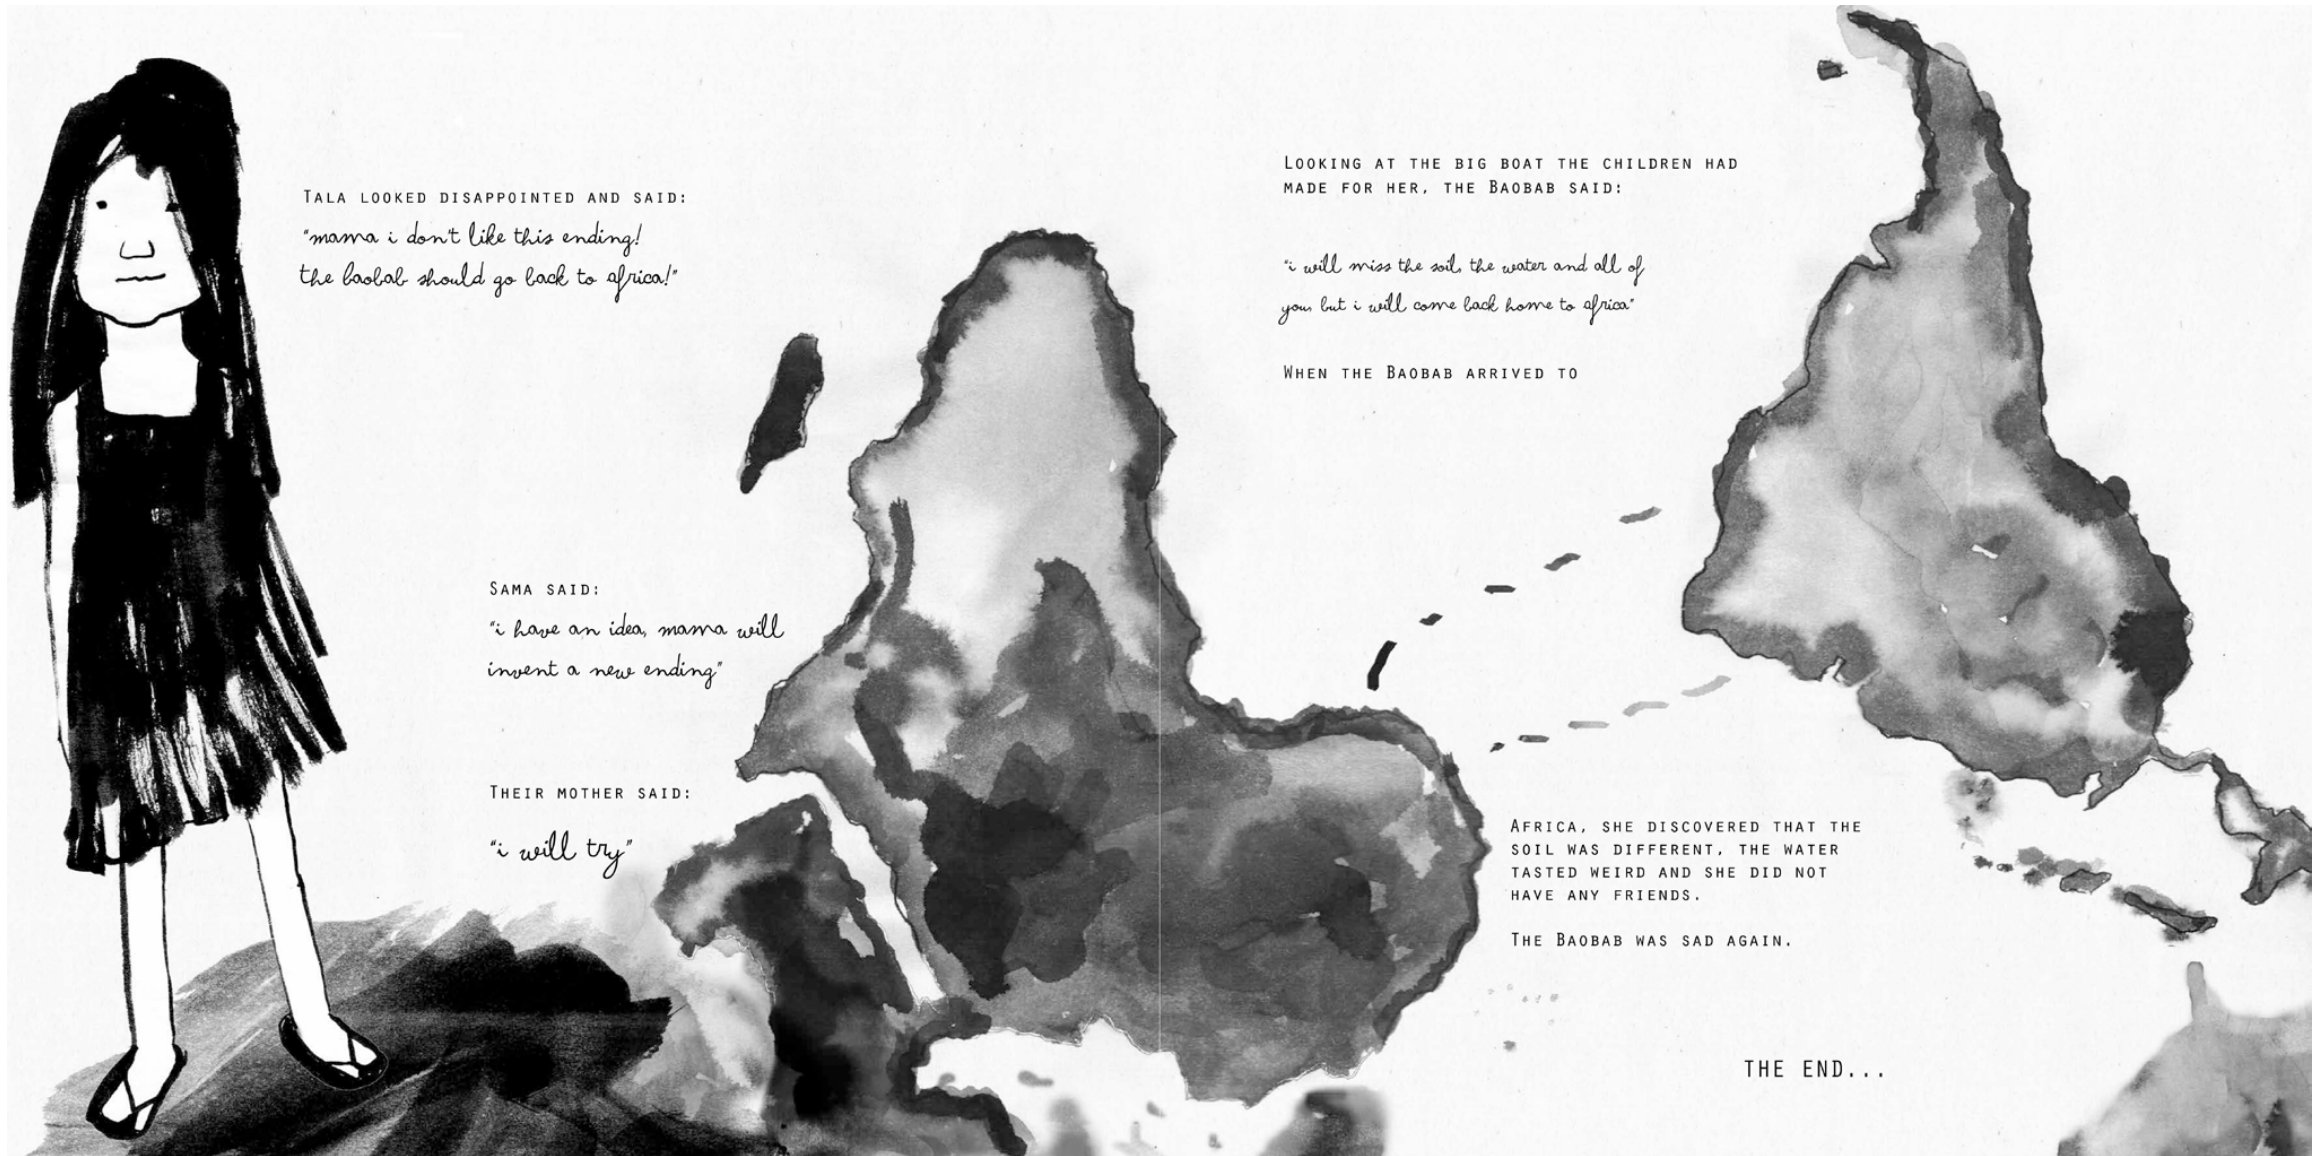 Tala looked disappointed and said:
"mama i don't like this ending!
the baobab should go back to africa!"
Sama said:
"i have an idea, mama will
invent a new ending"
Their mother said:
"i will try"
Looking at the big boat the children had
made for her, the Baobab said:
"i will miss the soil, the water and all of
you, but i will come back home to africa"
When the Baobab arrived to
Africa, she discovered that the
soil was different, the water
tasted weird and she did not
have any friends.
The Baobab was sad again.
THE END...